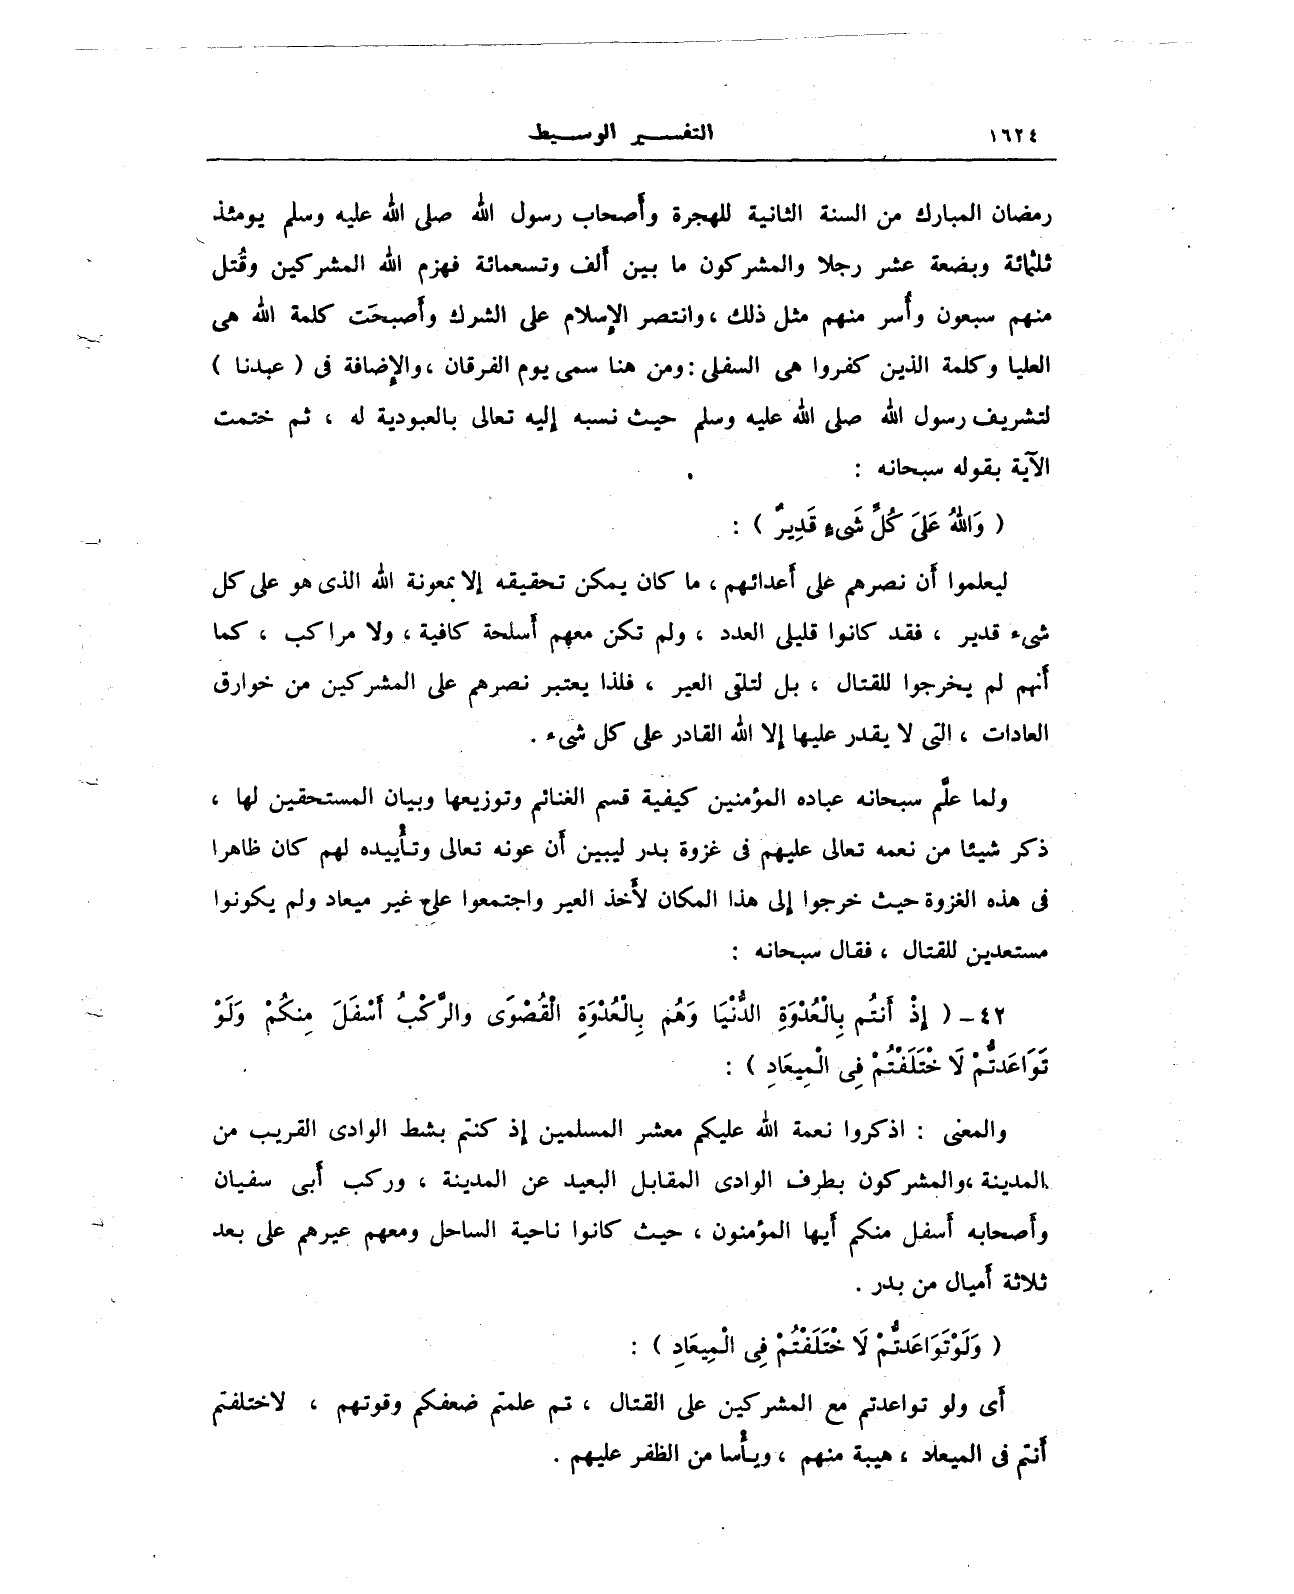 ١٦٢٤
التفسير الوسيط
رمضان المبارك من السنة الثانية للهجرة وأصحاب رسول الله صلى الله عليه وسلم يومئذ
ثلثمائة وبضعة عشر رجلا والمشركون ما بين ألف وتسعمائة فهزم الله المشركين وقُتل
منهم سبعون وأُسر منهم مثل ذلك ، وانتصر الإسلام على الشرك وأصبحَت كلمة الله هى
العليا وكلمة الذين كفروا هى السفلى : ومن هنا سمى يوم الفرقان ، والإضافة فى ( عبدنا )
لتشريف رسول الله صلى الله عليه وسلم حيث نسبه إليه تعالى بالعبودية له ، ثم ختمت
الآية بقوله سبحانه :
( وَاللهُ عَلَى كُلِّ شَىءٍ قَدِيرٌ ) :
ليعلموا أن نصرهم على أعدائهم ، ما كان يمكن تحقيقه إلا بمعونة الله الذى هو على كل
شىء قدير ، فقد كانوا قليلى العدد ، ولم تكن معهم أسلحة كافية ، ولا مراكب ، كما
أنهم لم يخرجوا للقتال ، بل لتلقى العير ، فلذا يعتبر نصرهم على المشركين من خوارق
العادات ، التى لا يقدر عليها إلا الله القادر على كل شىء .
ولما علَّم سبحانه عباده المؤمنين كيفية قسم الغنائم وتوزيعها وبيان المستحقين لها ،
ذكر شيئا من نعمه تعالى عليهم فى غزوة بدر ليبين أن عونه تعالى وتأييده لهم كان ظاهرا
فى هذه الغزوة حيث خرجوا إلى هذا المكان لأخذ العير واجتمعوا على غير ميعاد ولم يكونوا
مستعدين للقتال ، فقال سبحانه :
٤٢ – ( إِذْ أَنتُم بِالْعُدْوَةِ الدُّنْيَا وَهُم بِالْعُدْوَةِ الْقُصْوَى والرَّكْبُ أَسْفَلَ مِنكُمْ وَلَوْ
تَوَاعَدتُّمْ لَا خْتَلَفْتُمْ فِى الْمِيعَادِ ) :
والمعنى : اذكروا نعمة الله عليكم معشر المسلمين إذ كنتم بشط الوادى القريب من
المدينة ، والمشركون بطرف الوادى المقابل البعيد عن المدينة ، وركب أبى سفيان
وأصحابه أسفل منكم أيها المؤمنون ، حيث كانوا ناحية الساحل ومعهم عيرهم على بعد
ثلاثة أميال من بدر .
( وَلَوْ تَوَاعَدتُّمْ لَا خْتَلَفْتُمْ فِى الْمِيعَادِ ) :
أى ولو تواعدتم مع المشركين على القتال ، تم علمتم ضعفكم وقوتهم ، لاختلفتم
أنتم فى الميعاد ، هيبة منهم ، ويأسا من الظفر عليهم .